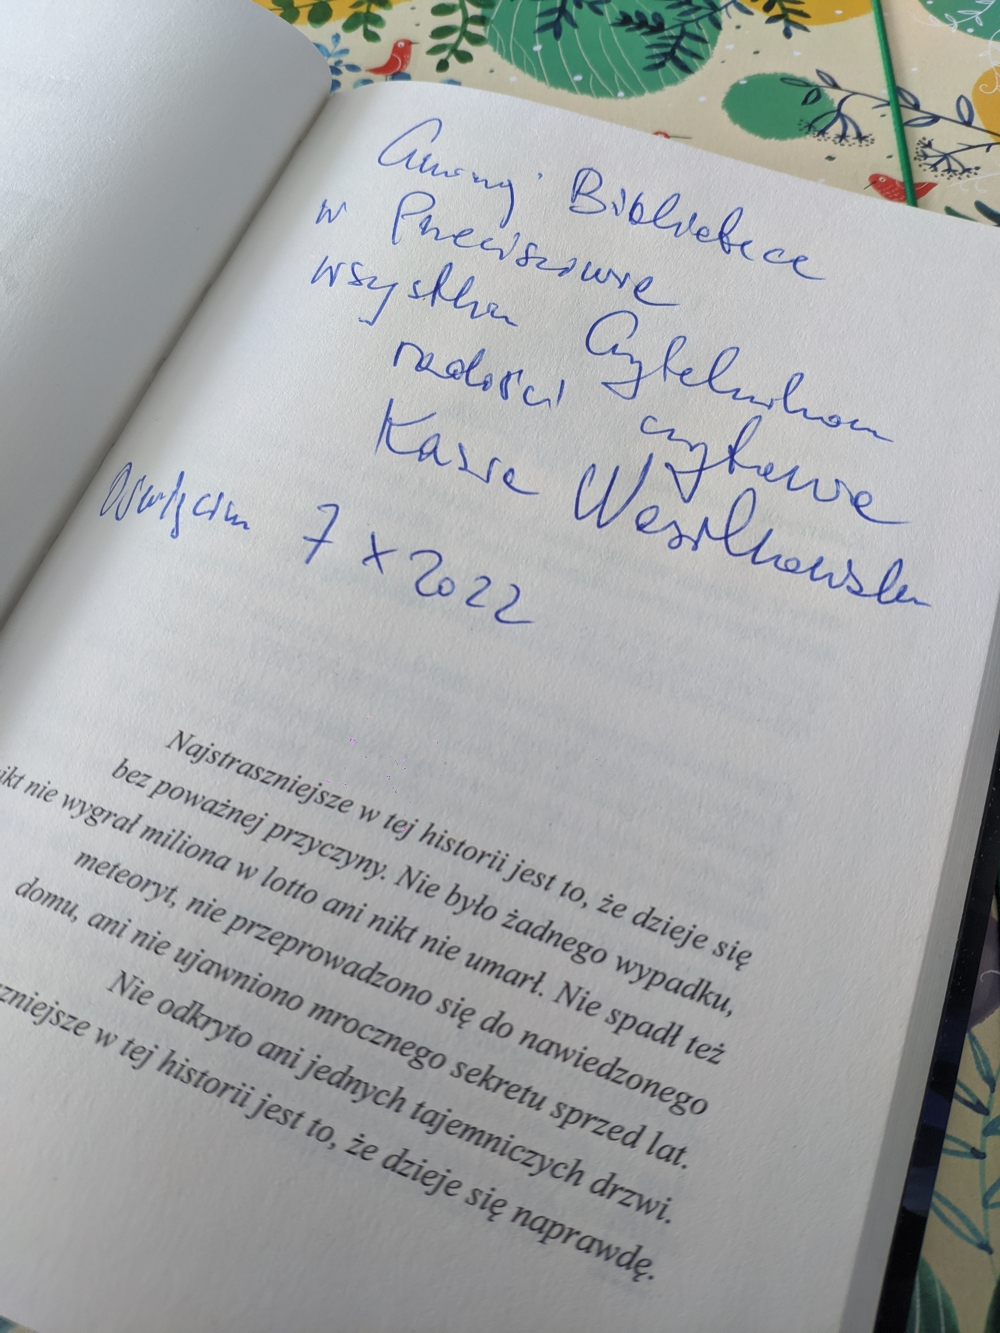 Gminnej Bibliotece
w Przeciszowie
wszystkim Czytelnikom
radości czytania
Kasia Wasilkowska
Oświęcim 7 X 2022
Najstraszniejsze w tej historii jest to, że dzieje się
bez poważnej przyczyny. Nie było żadnego wypadku,
nikt nie wygrał miliona w lotto ani nikt nie umarł. Nie spadł też
meteoryt, nie przeprowadzono się do nawiedzonego
domu, ani nie ujawniono mrocznego sekretu sprzed lat.
Nie odkryto ani jednych tajemniczych drzwi.
zniejsze w tej historii jest to, że dzieje się naprawdę.